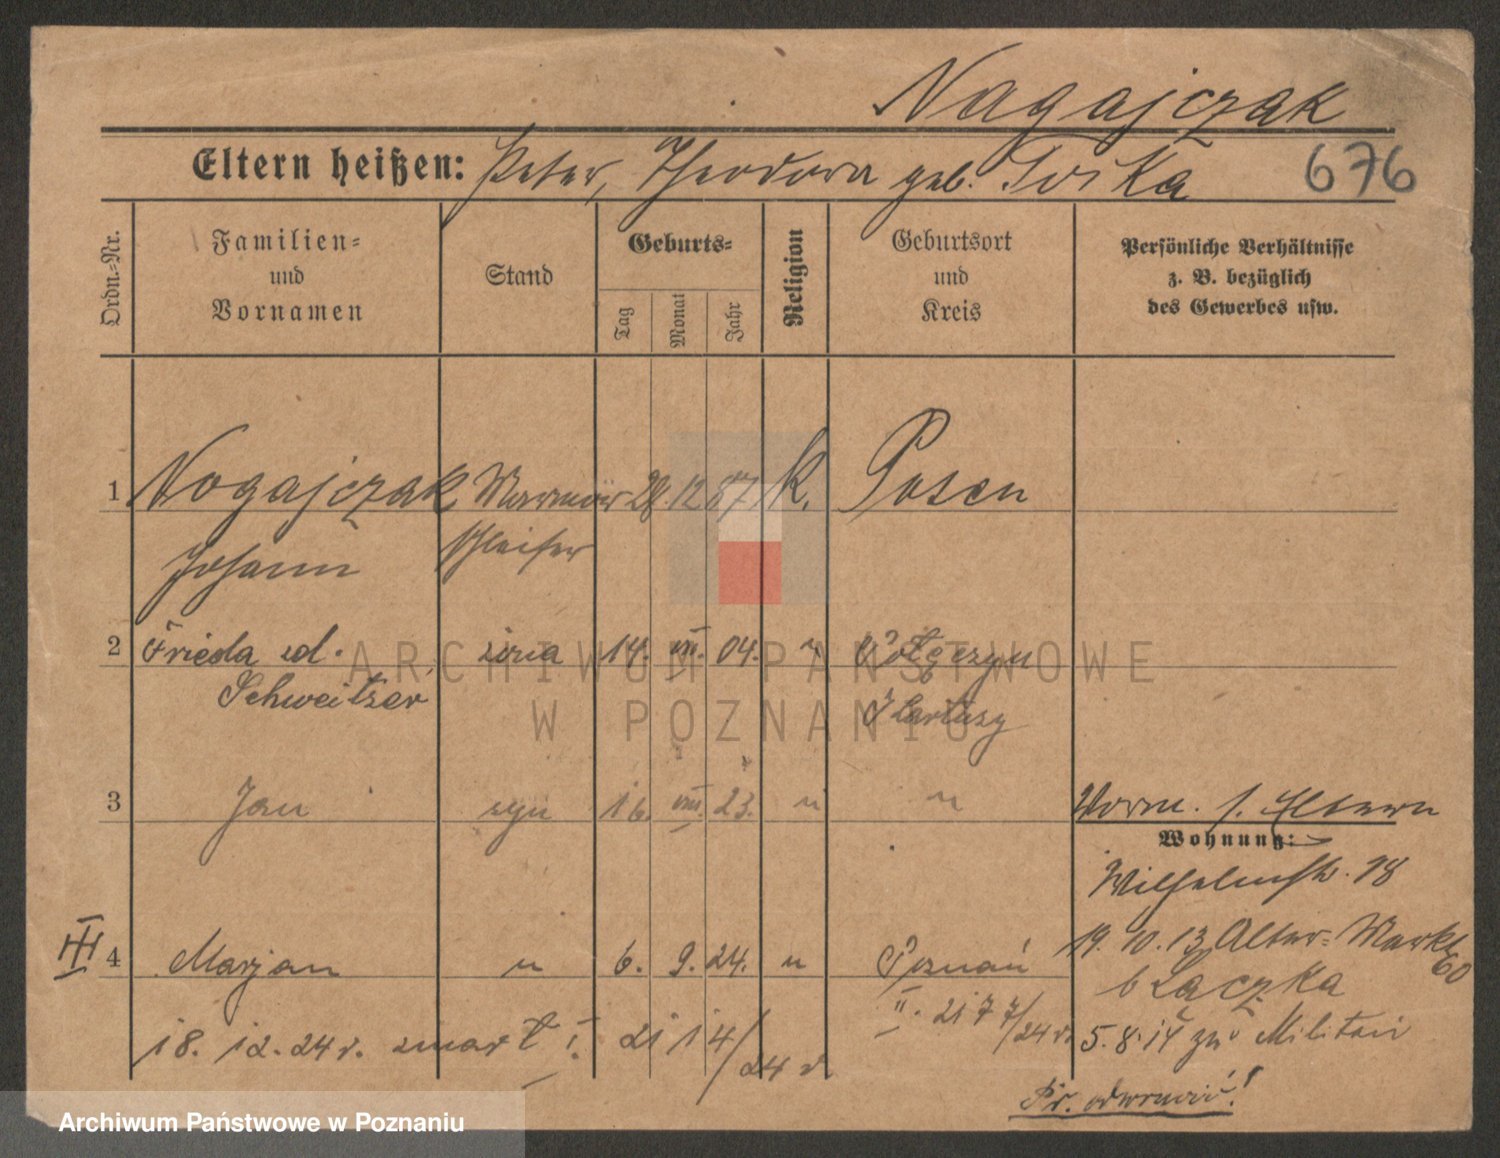 Nogajczak
Eltern heißen: Peter, Theodora geb. Toska
676
Ordn.-Nr.
Familien- und Vornamen
Stand
Geburts-
Tag
Monat
Jahr
Religion
Geburtsort und Kreis
Persönliche Verhältnisse z. B. bezüglich des Gewerbes usw.
1 Nogajczak Marmor 28 12 87 K. Posen
Johann schleifer
2 Frieda zd. żona 14. VIII. 04. "
Schweitzer Kartuzy
3 Jan syn 16. VIII. 23. " "
Vorm. s. Eltern
Wohnung:
Wilhelmstr. 18
III 4 Marjan " 6. 9. 24. " Poznań
19. 10. 13 Alter-Markt 60
b Laczka
II. 21 7 7/24 r.
18. 12. 24 r. zmarł I. 21 1 4/24 r
5. 8. 14 zu Militär
Pr. odwrócić!
ARCHIWUM PAŃSTWOWE
W POZNANIU
Archiwum Państwowe w Poznaniu